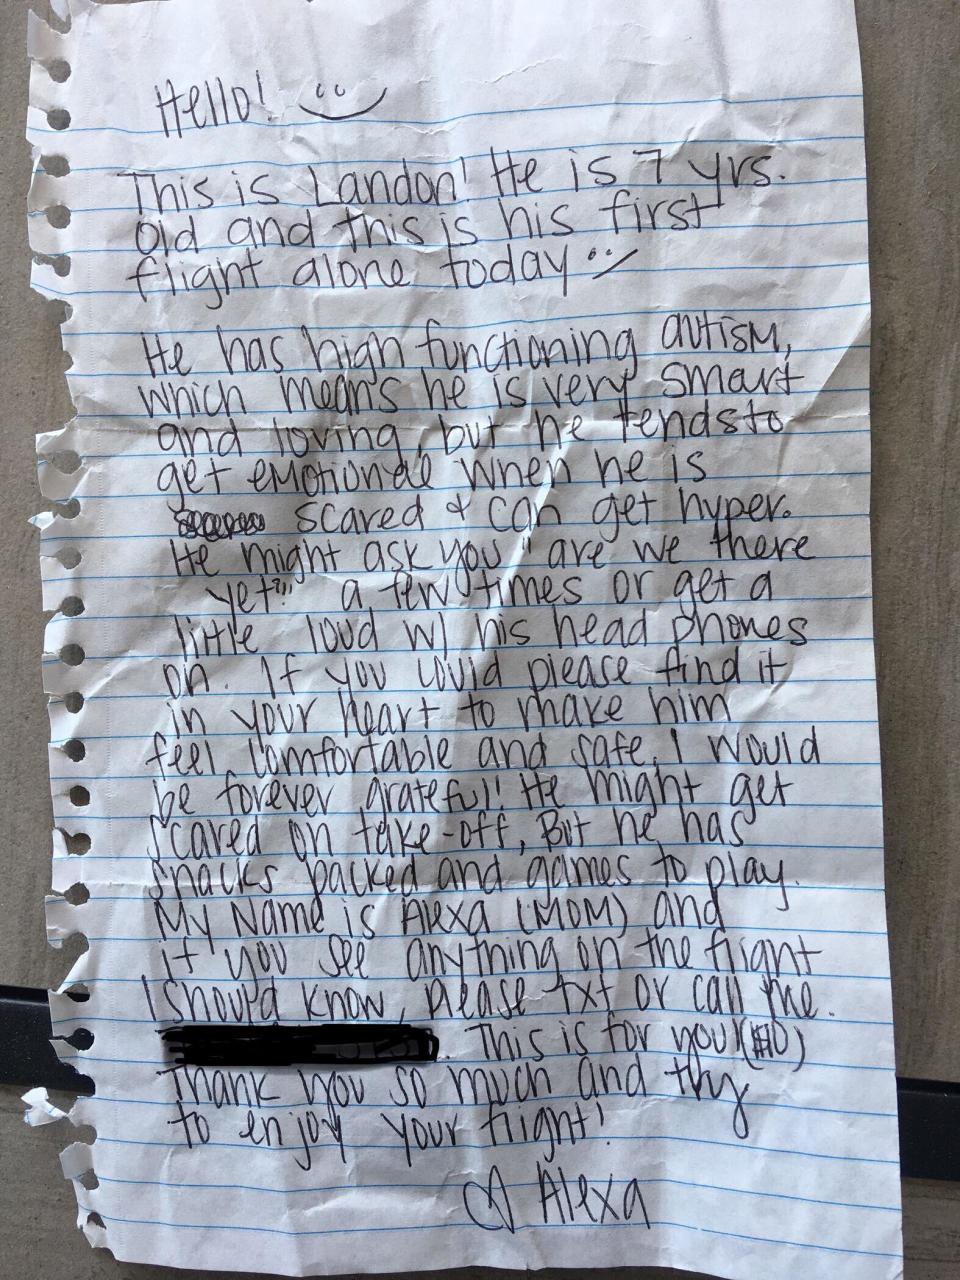 Hello!
This is Landon! He is 7 yrs.
old and this is his first
flight alone today
He has high functioning autism,
which means he is very smart
and loving, but he tends to
get emotional when he is
scared & can get hyper.
He might ask you "are we there
yet?" a few times or get a
little loud w/ his head phones
on. If you could please find it
in your heart to make him
feel comfortable and safe, I would
be forever grateful! He might get
scared on take-off, But he has
snacks packed and games to play.
My Name is Alexa (MOM) and
if you see anything on the flight
I should know, please txt or call me.
. This is for you! ($10)
Thank you so much and try
to enjoy your flight!
Alexa